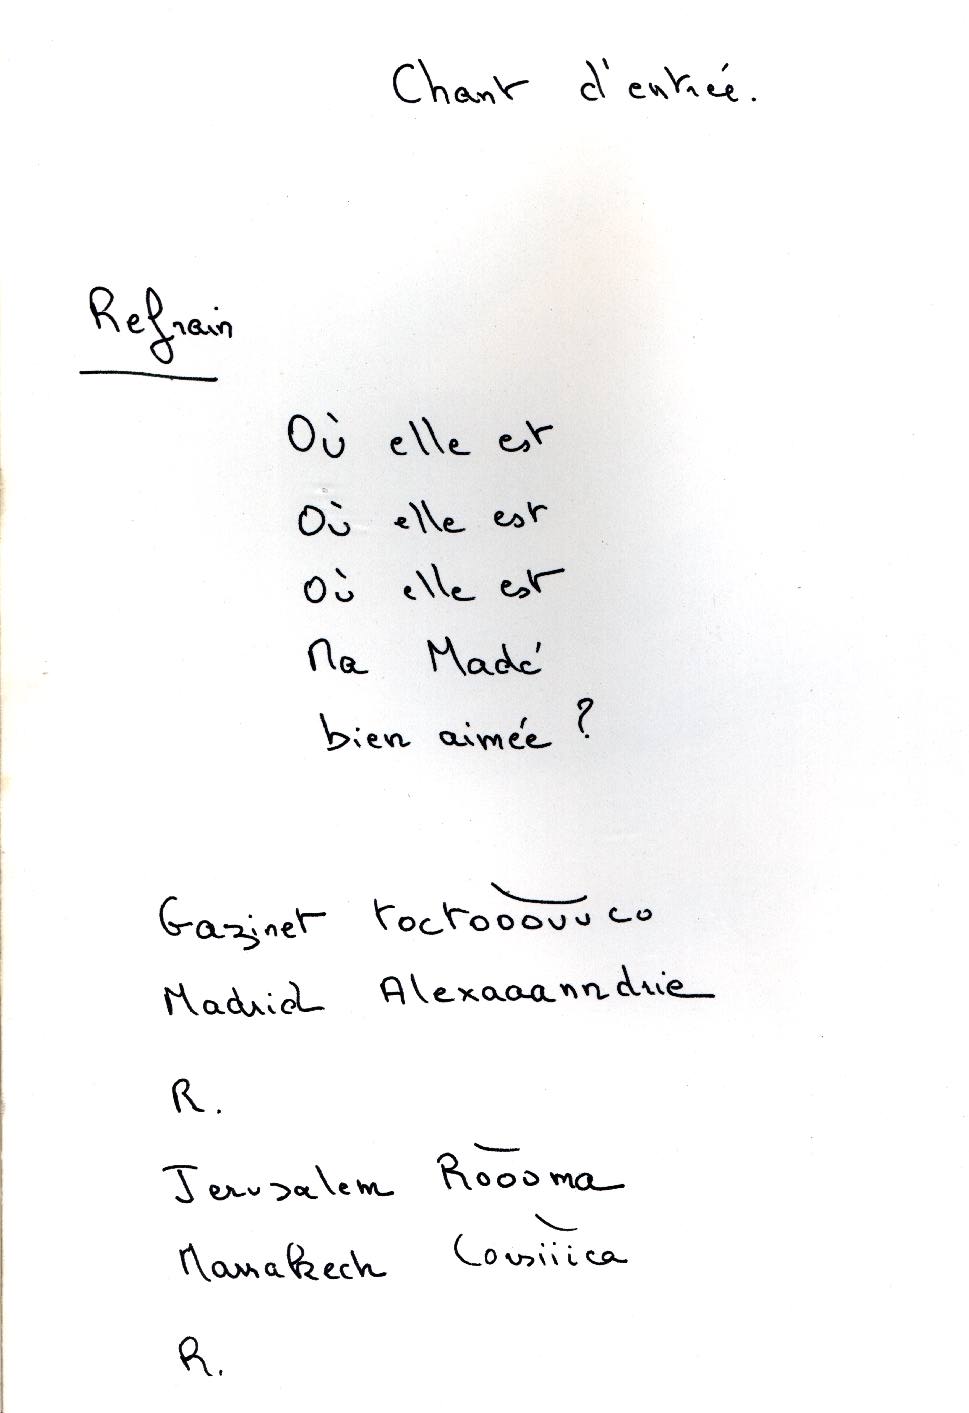 Chant d'entrée.
Refrain
Où elle est
Où elle est
Où elle est
Ma Madé
bien aimée ?
Gazinet toctooouuco
Madrid Alexaaanndrie
R.
Jerusalem Roooma
Marrakech Corsiiica
R.